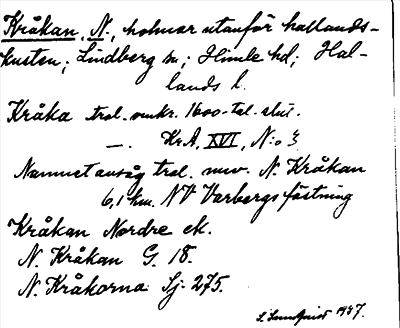 Kråkan, N., holmar utanför hallands-
kusten; Lindberg sn; Himle hd; Hal-
lands l.
Kråka trol. omkr. 1600-tal. slut.
—. Kr.A, XVI, N:o 3
Namnet ansåg trol. nuv. N. Kråkan
6,1 km. NV Varbergs fästning
Kråkan Nordre ek.
N. Kråkan G. 18.
N. Kråkorna Sj. 275.
S. Lundquist 1937.